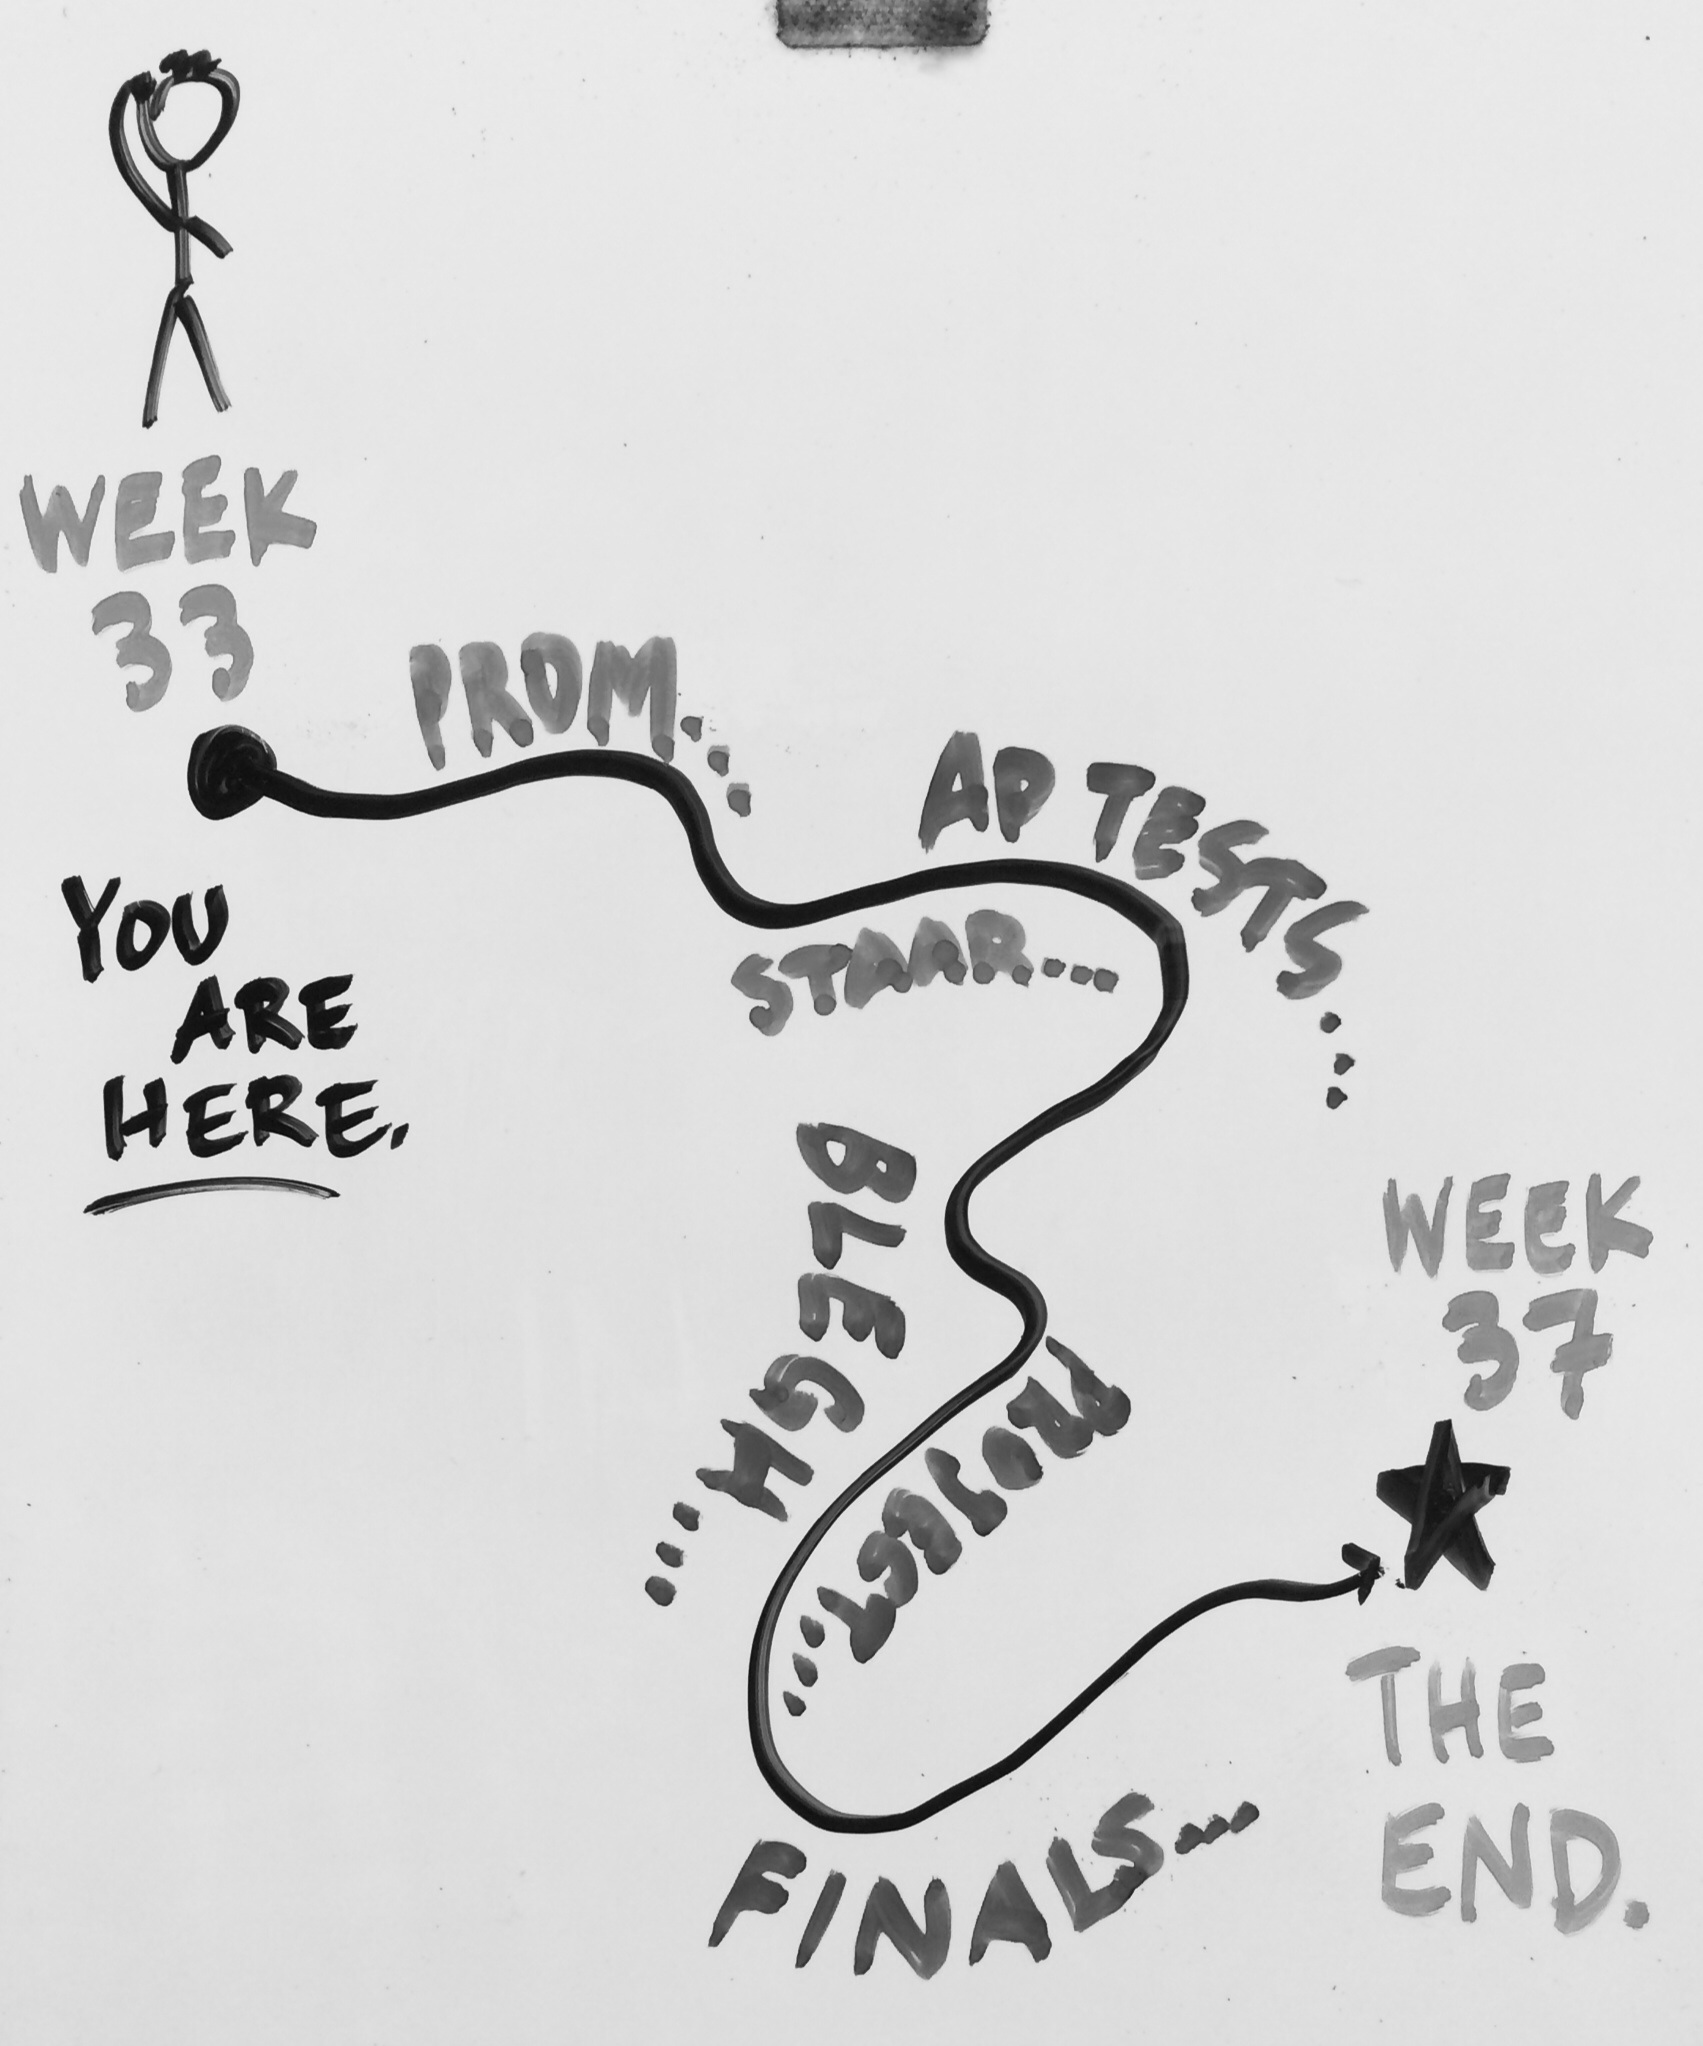 WEEK
33
PROM...
AP TESTS...
STAAR...
YOU
ARE
HERE.
BLEGH...
PROJECT...
WEEK
37
FINALS...
THE
END.